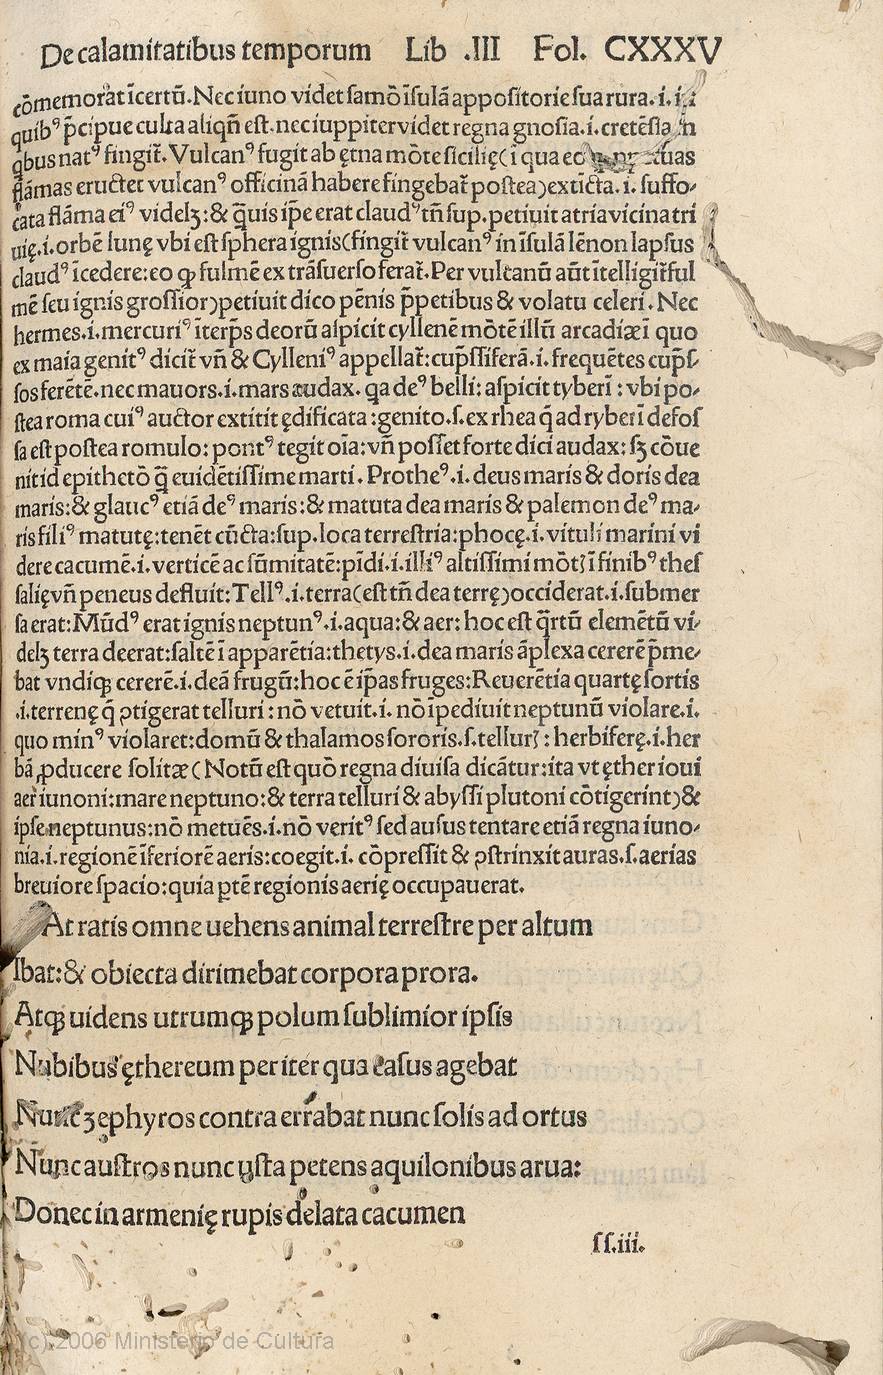 De calamitatibus temporum Lib .III Fol. CXXXV
cōmemorat īcertū. Nec iuno videt samō īsulā appositorie sua rura .i. ī
quibꝰ p̄cipue culta aliqn̄ est. nec iuppiter videt regna gnosia .i. cretēsia in
qbus natꝰ fingit̄. Vulcanꝰ fugit ab ętna mōte sicilię (ī qua suas
flāmas eructet vulcanꝰ officinā habere fingebat̄ postea) extīcta .i. suffo⸗
cata flāma eiꝰ videlꝫ: & q̄uis ip̄e erat claudꝰ tn̄ sup. petiuit atria vicina tri
uię .i. orbē lunę vbi est sphera ignis (fingit̄ vulcanꝰ in īsulā lēnon lapsus
claudꝰ īcedere: eo ꝙ fulmē ex trāsuerso ferat̄. Per vulcanū aūt ītelligit̄ ful
mē seu ignis grossior) petiuit dico pēnis p̄petibus & volatu celeri. Nec
hermes .i. mercuriꝰ īterp̄s deorū aspicit cyllenē mōtē illū arcadiæ ī quo
ex maia genitꝰ dicit̄ vn̄ & Cylleniꝰ appellat̄: cup̄ssiferā .i. frequētes cup̄s⸗
sos ferētē. nec mauors .i. mars audax. qa deꝰ belli: aspicit tyberī: vbi po⸗
stea roma cuiꝰ auctor extitit ędificata: genito .s. ex rhea q̄ ad ryberī defos
sa est postea romulo: pontꝰ tegit oīa: vn̄ posset forte dici audax: sꝫ cōue
nit id epithetō q̄ꝫ euidētissime marti. Protheꝰ .i. deus maris & doris dea
maris: & glaucꝰ etiā deꝰ maris: & matuta dea maris & palemon deꝰ ma⸗
ris filiꝰ matutę: tenēt cūcta: sup. loca terrestria: phocę .i. vituli marini vi
dere cacumē .i. verticē ac sūmitatē: pīdi .i. illiꝰ altissimi mōtꝭ ī finibꝰ thes
salię vn̄ peneus defluit: Tellꝰ .i. terra (est tn̄ dea terrę) occiderat .i. submer
sa erat: Mūdꝰ erat ignis neptunꝰ .i. aqua: & aer: hoc est q̄rtū elemētū vi⸗
delꝫ terra deerat: saltē ī apparētia: thetys .i. dea maris āplexa cererē p̄me⸗
bat vndiqꝫ cererē .i. deā frugū: hoc ē ip̄as fruges: Reuerētia quartę sortis
.i. terrenę q̄ ꝯtigerat telluri: nō vetuit .i. nō īpediuit neptunū violare .i.
quo minꝰ violaret: domū & thalamos sororis .s. tellurꝭ: herbiferę .i. her
bā ꝓducere solitæ (Notū est quō regna diuisa dicātur: ita vt ęther ioui
aer iunoni: mare neptuno: & terra telluri & abyssi plutoni cōtigerint) &
ipse neptunus: nō metuēs .i. nō veritꝰ sed ausus tentare etiā regna iuno⸗
nia .i. regionē īferiorē aeris: coegit .i. cōpressit & ꝯstrinxit auras .s. aerias
breuiore spacio: quia ꝑtē regionis aerię occupauerat.
At ratis omne uehens animal terrestre per altum
Ibat: & obiecta dirimebat corpora prora.
Atqꝫ uidens utrumqꝫ polum sublimior ipsis
Nubibus ęthereum per iter qua casus agebat
Nunc zephyros contra errabat nunc solis ad ortus
Nunc austros nunc usta petens aquilonibus arua:
Donec in armenię rupis delata cacumen
ss.iii.
(c) 2006 Ministerio de Cultura